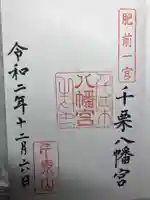 肥前一宮
千栗八幡宮
八幡宮
令和二年十二月六日